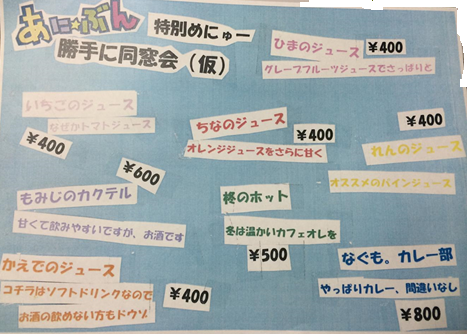 あに☆ぶん
特別めにゅー
勝手に同窓会（仮）
ひまのジュース
¥400
グレープフルーツジュースでさっぱりと
いちごのジュース
なぜかトマトジュース
¥400
ちなのジュース
¥400
オレンジジュースをさらに甘く
¥400
れんのジュース
オススメのパインジュース
¥600
もみじのカクテル
甘くて飲みやすいですが、お酒です
柊のホット
冬は温かいカフェオレを
¥500
かえでのジュース
コチラはソフトドリンクなので
お酒の飲めない方もドウゾ
¥400
なぐも。カレー部
やっぱりカレー、間違いなし
¥800